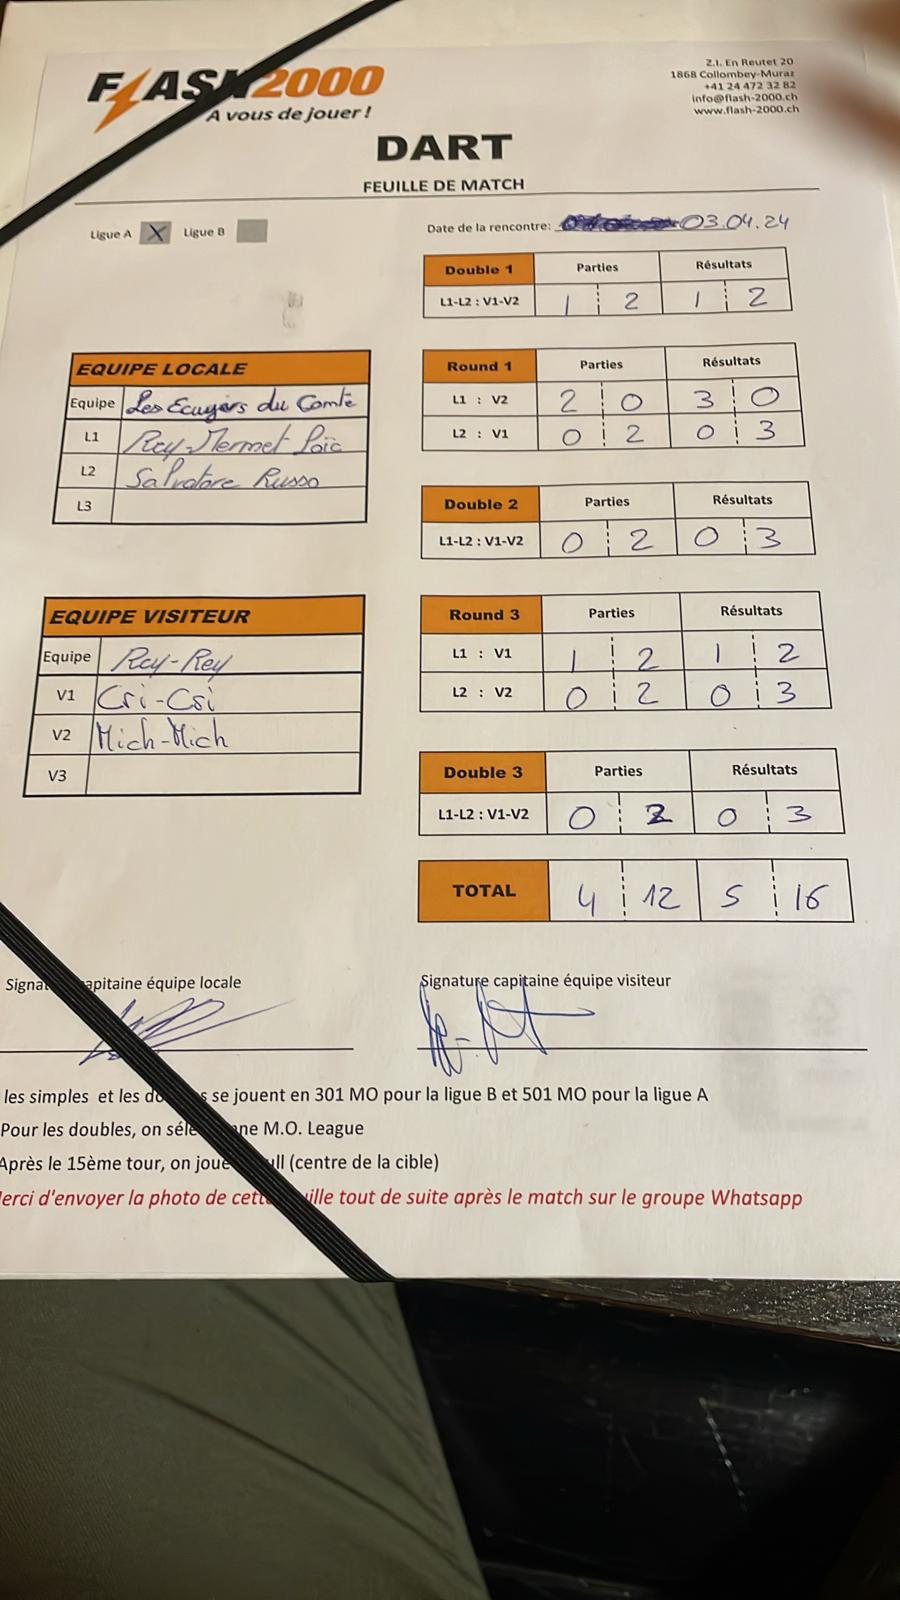 FLASH2000
A vous de jouer !
Z.I. En Reutet 20
1868 Collombey-Muraz
+41 24 472 32 82
info@flash-2000.ch
www.flash-2000.ch
DART
FEUILLE DE MATCH
Ligue A X Ligue B
Date de la rencontre: 03.04.24
Double 1 Parties Résultats
L1-L2 : V1-V2 1 2 1 2
EQUIPE LOCALE
Equipe Les Ecuyers du Comté
L1 Rey-Mermet Loïc
L2 Salvatore Russo
L3
Round 1 Parties Résultats
L1 : V2 2 0 3 0
L2 : V1 0 2 0 3
Double 2 Parties Résultats
L1-L2 : V1-V2 0 2 0 3
EQUIPE VISITEUR
Equipe Rey-Rey
V1 Csi-Csi
V2 Mich-Mich
V3
Round 3 Parties Résultats
L1 : V1 1 2 1 2
L2 : V2 0 2 0 3
Double 3 Parties Résultats
L1-L2 : V1-V2 0 2 0 3
TOTAL 4 12 5 16
capitaine équipe locale
Signature capitaine équipe visiteur
les simples et les se jouent en 301 MO pour la ligue B et 501 MO pour la ligue A
Pour les doubles, on M.O. League
Après le 15ème tour, on (centre de la cible)
d'envoyer la photo de tout de suite après le match sur le groupe Whatsapp